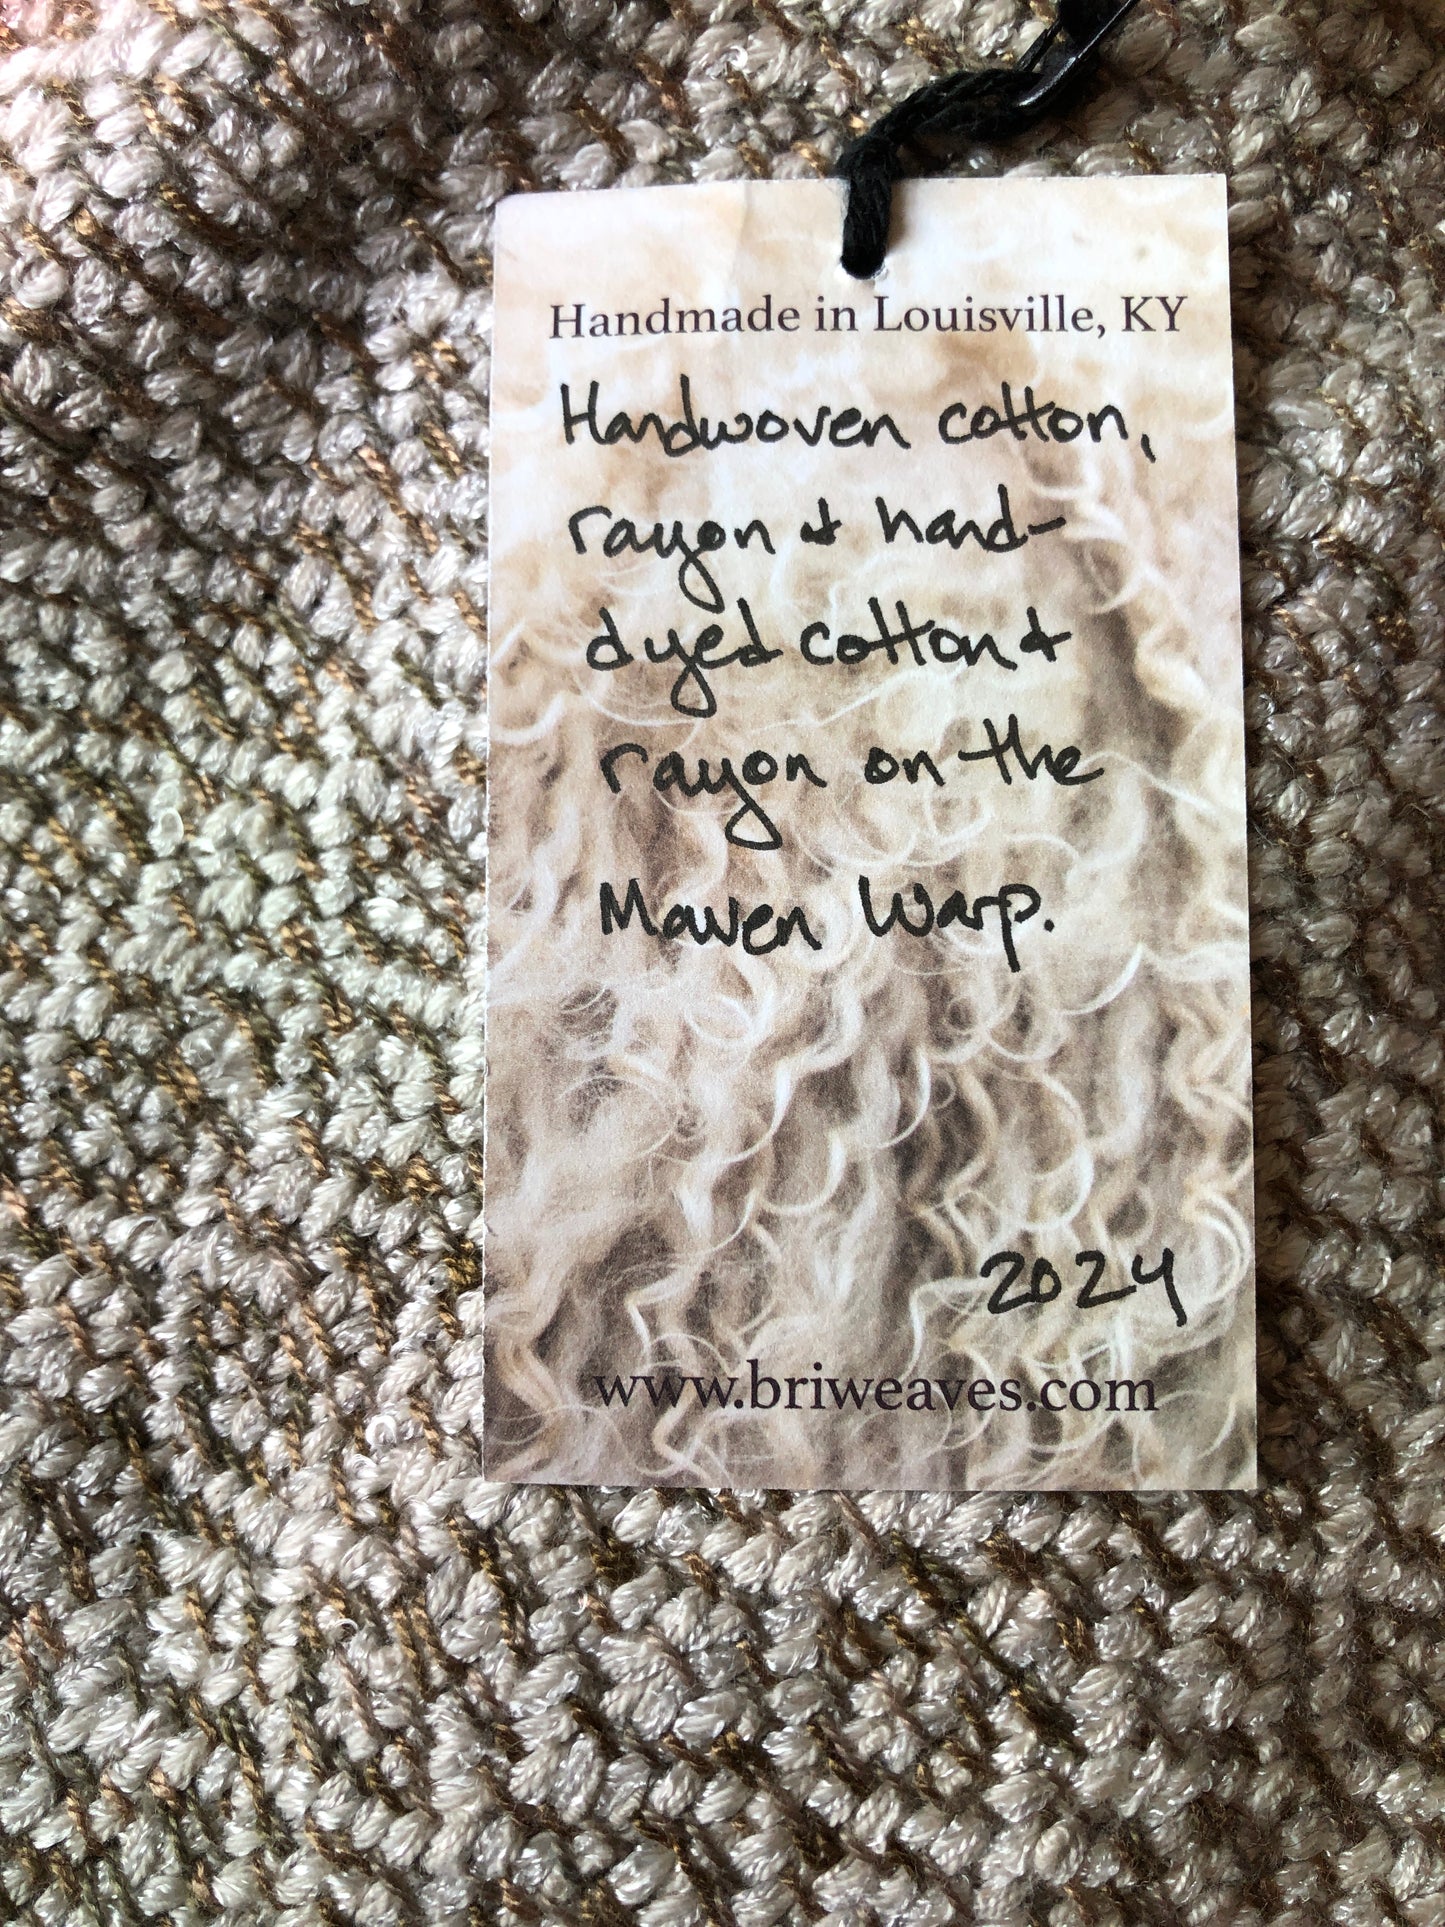 Handmade in Louisville, KY
Handwoven cotton,
rayon & hand-
dyed cotton &
rayon on the
Maven Warp.
2024
www.briweaves.com